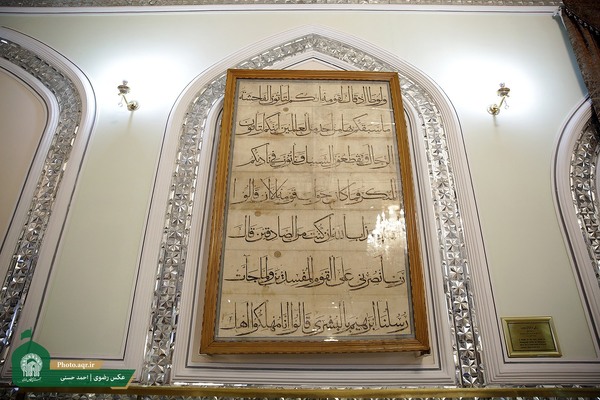 ولوطا اذ قال لقومه انكم لتأتون الفاحشة
ما سبقكم بها من احد من العالمين ائنكم لتأتون
الرجال وتقطعون السبيل وتأتون في ناديكم
المنكر فما كان جواب قومه الا ان قالوا
الله ان كنت من الصادقين قال
رب انصرني على القوم المفسدين ولما جاءت
رسلنا ابرهيم بالبشرى قالوا انا مهلكوا اهل
Photo.aqr.ir
عکس رضوی | احمد حسنی